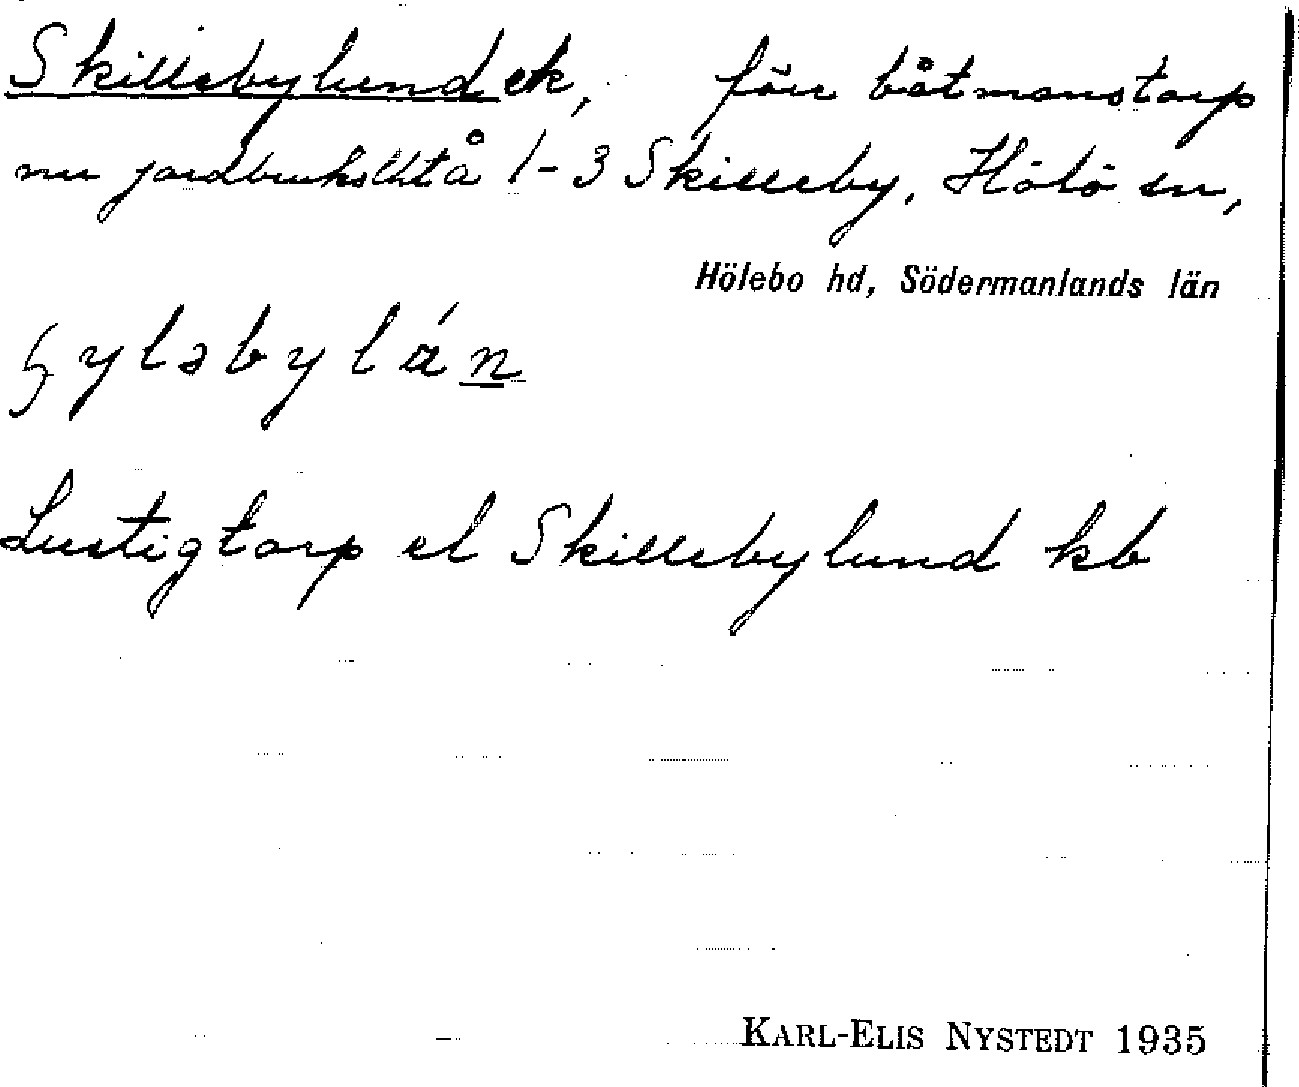 Skillebylund ek, förr båtmanstorp
nu jordbrukslht å 1-3 Skilleby, Hölö sn,
Hölebo hd, Södermanlands län
ylsbylán
Lustigtorp el Skillebylund kb
KARL-ELIS NYSTEDT 1935